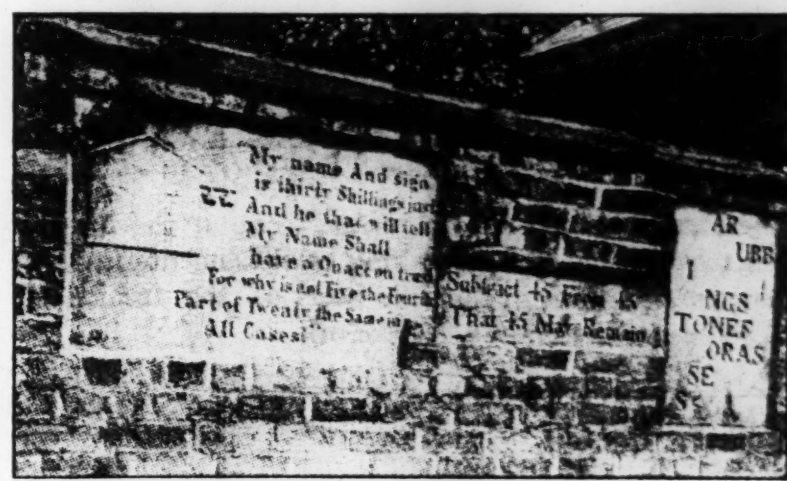 "My name And sign
is thirty Shillings just
And he that will tell
My Name Shall
have a Quart on trust
For why is not Five the Fourth
Part of Twenty the Same in
All Cases?"
Subtract 45 From 45
That 45 May Remain
AR
UBB
I
NGS
TONEF
ORAS
SE